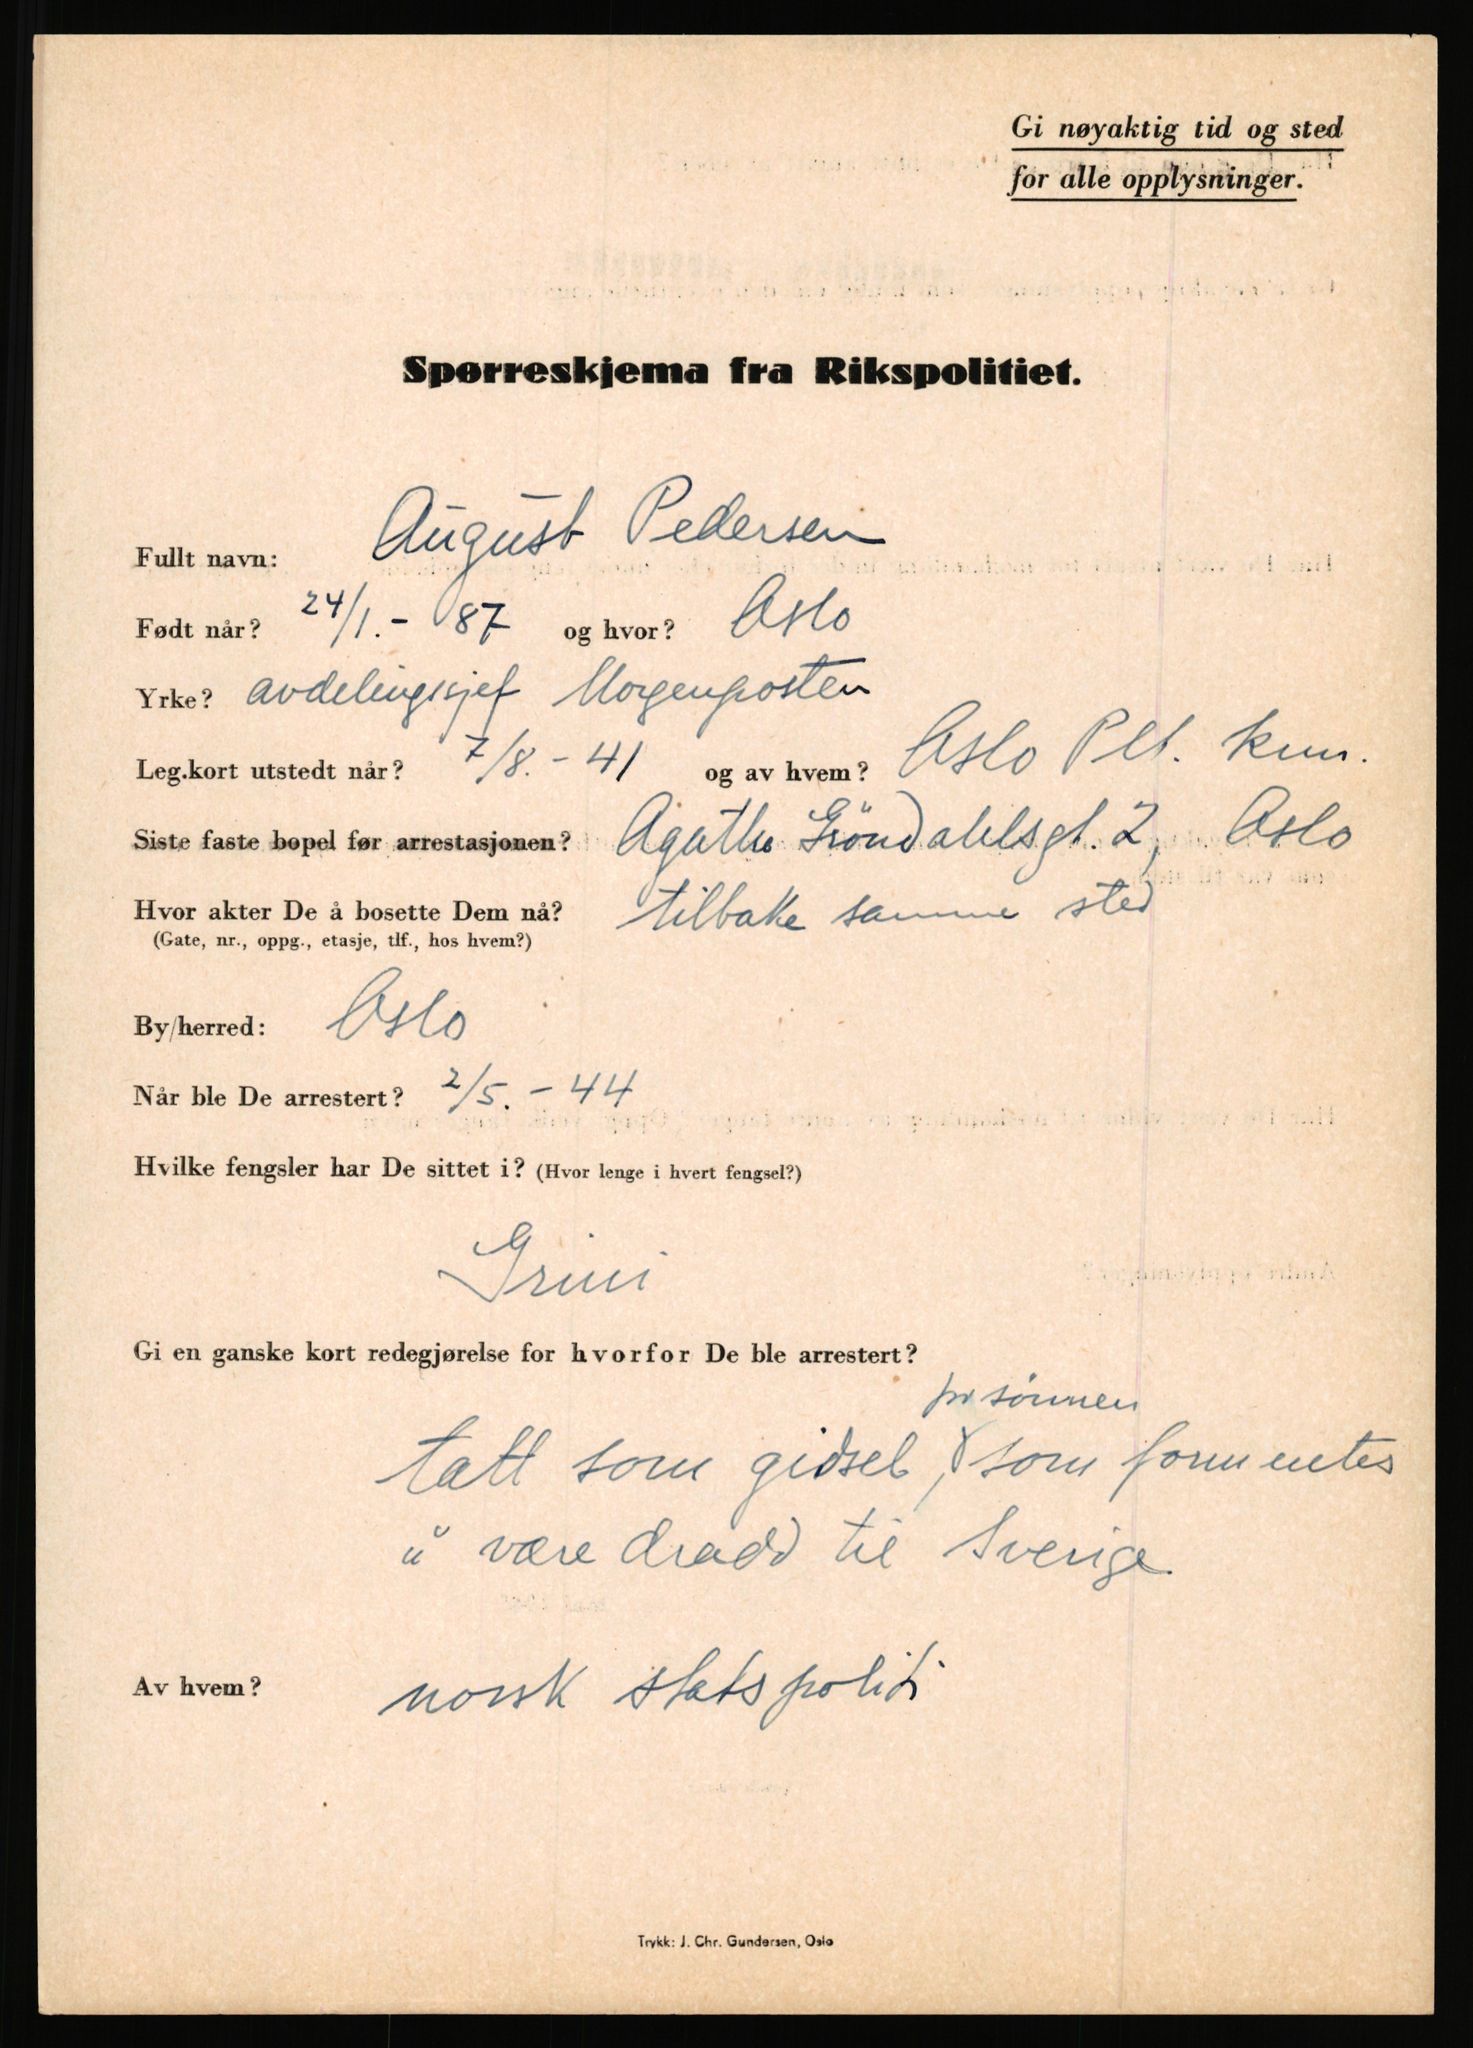 Gi nøyaktig tid og sted
for alle opplysninger.
Spørreskjema fra Rikspolitiet.
Fullt navn: August Pedersen
Født når? 24/1.- 87 og hvor? Oslo
Yrke? avdelingssjef Morgenposten
Leg.kort utstedt når? 7/8.- 41 og av hvem? Oslo Plt. kam.
Siste faste bopel før arrestasjonen? Agathe Gröndahlsgt. 2, Oslo
Hvor akter De å bosette Dem nå? tilbake samme sted
(Gate, nr., oppg., etasje, tlf., hos hvem?)
By/herred: Oslo
Når ble De arrestert? 2/5. - 44
Hvilke fengsler har De sittet i? (Hvor lenge i hvert fengsel?)
Grini
Gi en ganske kort redegjørelse for hvorfor De ble arrestert?
for sönnen
tatt som gidsel, som formentes
å være dradd til Sverige
Av hvem? norsk statspoliti
Trykk: J. Chr. Gundersen, Oslo